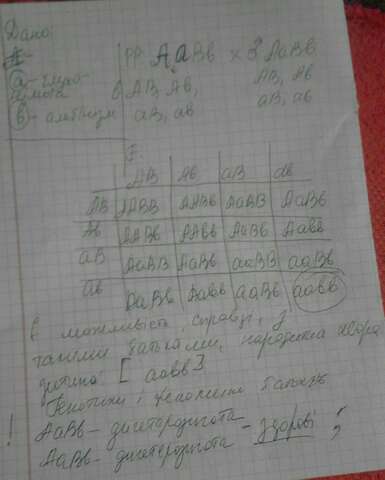 Дано:
А-
а - глухо-
німота
в - альбінізм
PP АаВв × ♂ АаВв
G АВ, Ав, АВ, Ав
аВ, ав аВ, ав
F₁
АВ Ав аВ ав
АВ ААВВ ААВв АаВВ АаВв
Ав ААВв ААвв АаВв Аавв
аВ АаВВ АаВв ааВВ ааВв
ав АаВв Аавв ааВв аавв
Є можливість, справді, з
такими батьками, народити хвора
дитина [аавв]
Генотипи і фенотипи батьків
! АаВв - дигетерозигота
АаВв - дигетерозигота - здорові